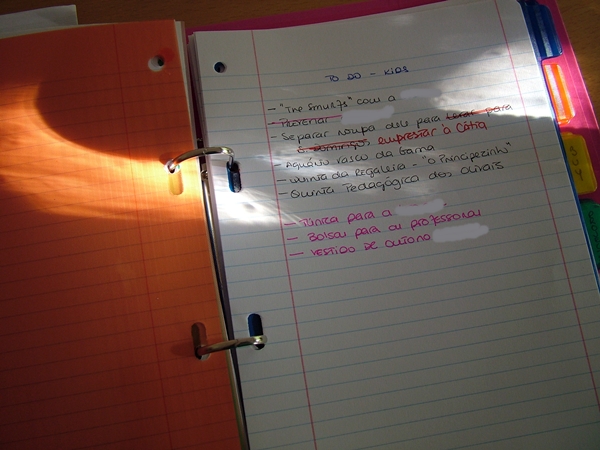 TO DO - KIDS
- "The Smurfs" com a
- Prevenar
- Separar roupa dele para levar para
o domingo, emprestar à Cátia
- Aquário Vasco da Gama
- Quinta da Regaleira - "O Principezinho"
- Quinta Pedagógica dos Olivais
- Túnica para a
- Bolsas para as professoras
- Vestido de outono